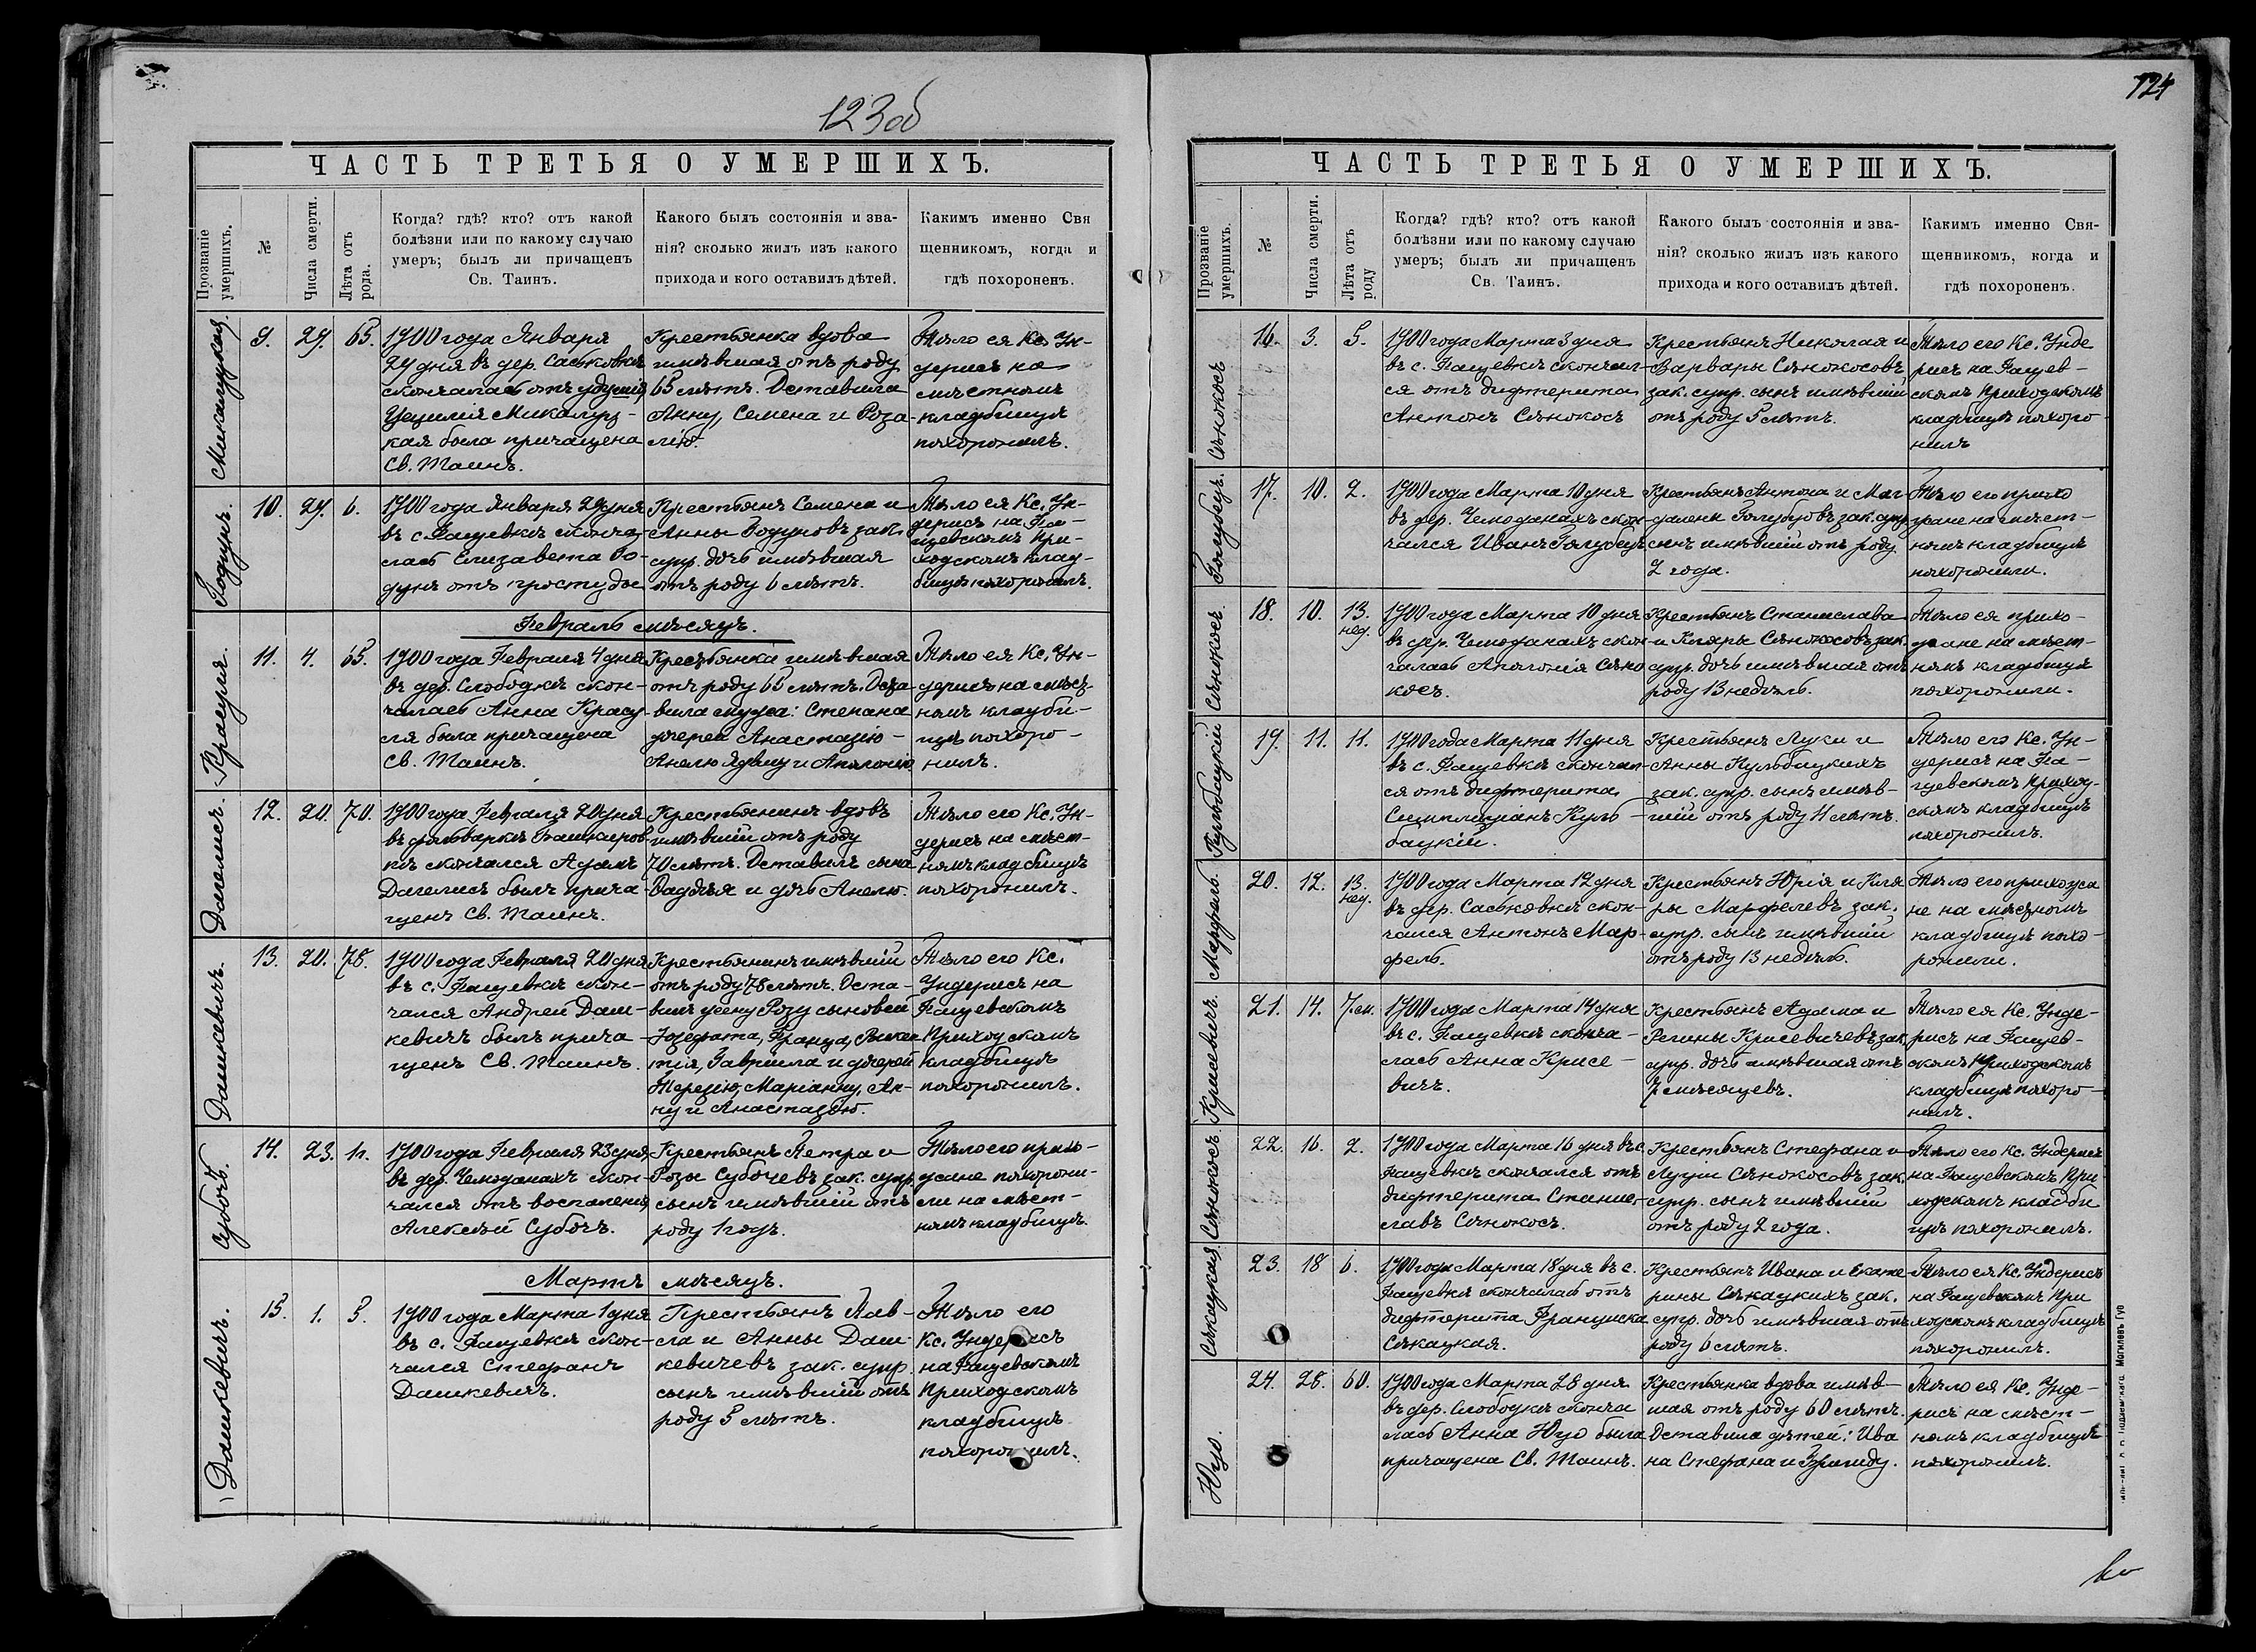 123об
ЧАСТЬ ТРЕТЬЯ О УМЕРШИХЪ.
Прозваніе умершихъ.
№
Числа смерти.
Лѣта отъ рода.
Когда? гдѣ? кто? отъ какой
болѣзни или по какому случаю
умеръ; былъ ли причащенъ
Св. Таинъ.
Какого былъ состоянія и зва-
нія? сколько жилъ изъ какого
прихода и кого оставилъ дѣтей.
Какимъ именно Свя
щенникомъ, когда и
гдѣ похороненъ.
Микалуцкая.
9.
65.
1900 года Января
дня въ дер. Саськовкѣ
скончалась отъ удушія
Цецилія Микалуц-
кая была причащена
Св. Таинъ.
Крестьянка вдова
имѣвшая отъ роду
65 лѣтъ. Оставила
Анну, Семена и Роза
лію.
Тѣло ея Кс. Ун-
дерисъ на
мѣстномъ
кладбищѣ
похоронилъ.
10.
6.
1900 года Января дня
въ с. Фащевкѣ сконча-
лась Елизавета Во-
дунъ отъ простуды
Крестьянъ Семена и
Анны Водуновъ зак.
супр. дочь имѣвшая
отъ роду 6 лѣтъ.
Тѣло ея Кс. Ун-
дерисъ на Фа-
щевскомъ При-
ходскомъ клад-
бищѣ похоронилъ.
Февраль мѣсяцъ.
Красуля.
11.
4.
65.
1900 года Февраля 4 дня
въ дер. Слободкѣ скон-
чалась Анна Красу-
ля была причащена
Св. Таинъ.
Крестьянка имѣвшая
отъ роду 65 лѣтъ. Оста-
вила мужа: Степана
дочерей Анастазію-
Анелю Ядвигу и Аполонію
Тѣло ея Кс. Ун-
дерисъ на мѣст-
номъ кладби-
щѣ похоро-
нилъ.
Дагелисъ.
12.
20.
70.
1900 года Февраля 20 дня
въ фольваркѣ Башкиров-
кѣ скончался Адамъ
Дагелисъ былъ прича-
щенъ Св. Таинъ.
Крестьянинъ вдовъ
имѣвшій отъ роду
70 лѣтъ. Оставилъ сына
Фаддѣя и дочь Анелю.
Тѣло его Кс. Ун-
дерисъ на мѣст-
номъ кладбищѣ
похоронилъ.
Дашкевичъ.
13.
20.
78.
1900 года Февраля 20 дня
въ с. Фащевкѣ скон-
чался Андрей Даш-
кевичъ былъ прича-
щенъ Св. Таинъ.
Крестьянинъ имѣвшій
отъ роду 78 лѣтъ. Оста-
вилъ жену Розу сыновей
Іозефата, Франца, Викен
тія, Гавріила и дочерей
Терезію, Маріанну, Ан-
ну и Анастазію.
Тѣло его Кс.
Ундерисъ на
Фащевскомъ
Приходскомъ
кладбищѣ
похоронилъ.
Субочъ.
14.
23.
1г.
1900 года Февраля 23 дня
въ дер. Чемоданахъ скон-
чался отъ воспаленія
Алексѣй Субочъ.
Крестьянъ Петра и
Розы Субочевъ зак. супр.
сынъ имѣвшій отъ
роду 1 годъ.
Тѣло его прихо-
жане похорони-
ли на мѣст-
номъ кладбищѣ.
Мартъ мѣсяцъ.
Дашкевичъ.
15.
1.
5.
1900 года Марта 1 дня
въ с. Фащевкѣ скон-
чался Стефанъ
Дашкевичъ.
Крестьянъ Пав-
ла и Анны Даш-
кевичевъ зак. супр.
сынъ имѣвшій отъ
роду 5 лѣтъ.
Тѣло его
Кс. Ундерисъ
на Фащевскомъ
Приходскомъ
кладбищѣ
похоронилъ.
124
ЧАСТЬ ТРЕТЬЯ О УМЕРШИХЪ.
Прозваніе умершихъ.
№
Числа смерти.
Лѣта отъ роду
Когда? гдѣ? кто? отъ какой
болѣзни или по какому случаю
умеръ; былъ ли причащенъ
Св. Таинъ.
Какого былъ состоянія и зва-
нія? сколько жилъ изъ какого
прихода и кого оставилъ дѣтей.
Какимъ именно Свя-
щенникомъ, когда и
гдѣ похороненъ.
Сѣнокосъ
16.
3.
5.
1900 года Марта 3 дня
въ с. Фащевкѣ скончал-
ся отъ дифтерита
Антонъ Сѣнокосъ
Крестьянъ Николая и
Варвары Сѣнокосовъ
зак. супр. сынъ имѣвшій
отъ роду 5 лѣтъ.
Тѣло его Кс. Унде
рисъ на Фащев-
скомъ Приходскомъ
кладбищѣ похоро-
нилъ
Голубецъ.
17.
10.
2.
1900 года Марта 10 дня
въ дер. Чемоданахъ скон-
чался Иванъ Голубецъ
Крестьянъ Антона и Маг-
далены Голубцовъ зак. супр
сынъ имѣвшій отъ роду
2 года.
Тѣло его прихо
жане на мѣст-
номъ кладбищѣ
похоронили.
Сѣнокосъ.
18.
10.
13. нед.
1900 года Марта 10 дня
въ дер. Чемоданахъ скон
чалась Аполонія Сѣно
косъ.
Крестьянъ Станислава
и Кляры Сѣнокосовъ зак.
супр. дочь имѣвшая отъ
роду 13 недѣль.
Тѣло ея прихо-
жане на мѣст-
номъ кладбищѣ
похоронили.
Кульбацкій
19.
11.
11.
1900 года Марта 11 дня
въ с. Фащевкѣ скончал-
ся отъ дифтерита
Симплиціанъ Куль-
бацкій.
Крестьянъ Луки и
Анны Кульбацкихъ
зак. супр. сынъ имѣв-
шій отъ роду 11 лѣтъ.
Тѣло его Кс. Ун-
дерисъ на Фа-
щевскомъ Приход-
скомъ кладбищѣ
похоронилъ.
Марфель.
20.
12.
13. нед.
1900 года Марта 12 дня
въ дер. Саськовкѣ скон-
чался Антонъ Мар-
фель.
Крестьянъ Юрія и Кля
ры Марфелевъ зак.
супр. сынъ имѣвшій
отъ роду 13 недѣль.
Тѣло его прихожа
не на мѣстномъ
кладбищѣ похо-
ронили.
Крисевичъ.
21.
14.
7.м.
1900 года Марта 14 дня
въ с. Фащевкѣ сконча-
лась Анна Крисе-
вичъ.
Крестьянъ Адама и
Регины Крисевичевъ зак.
супр. дочь имѣвшая отъ
7 мѣсяцевъ.
Тѣло ея Кс. Унде-
рисъ на Фащев-
скомъ Приходскомъ
кладбищѣ похоро-
нилъ.
Сѣнокосъ.
22.
16.
2.
1900 года Марта 16 дня въ с.
Фащевкѣ скончался отъ
дифтерита Станис-
лавъ Сѣнокосъ.
Крестьянъ Стефана и
Луціи Сѣнокосовъ зак.
супр. сынъ имѣвшій
отъ роду 2 года.
Тѣло его Кс. Ундерисъ
на Фащевскомъ При
ходскомъ кладби
щѣ похоронилъ.
Сѣкацкая.
23.
18
6.
1900 года Марта 18 дня въ с.
Фащевкѣ скончалась отъ
дифтерита Франциска
Сѣкацкая.
Крестьянъ Ивана и Екате
рины Сѣкацкихъ зак.
супр. дочь имѣвшая отъ
роду 6 лѣтъ.
Тѣло ея Кс. Ундерисъ
на Фащевскомъ При
ходскомъ кладбищѣ
похоронилъ.
24.
28.
60.
1900 года Марта 28 дня
въ дер. Слободкѣ сконча
лась Анна была
причащена Св. Таинъ.
Крестьянка вдова имѣв-
шая отъ роду 60 лѣтъ.
Оставила дѣтей: Ива
на Стефана и
Тѣло ея Кс. Унде-
рисъ на мѣст-
номъ кладбищѣ
похоронилъ.
Могилевъ Губ